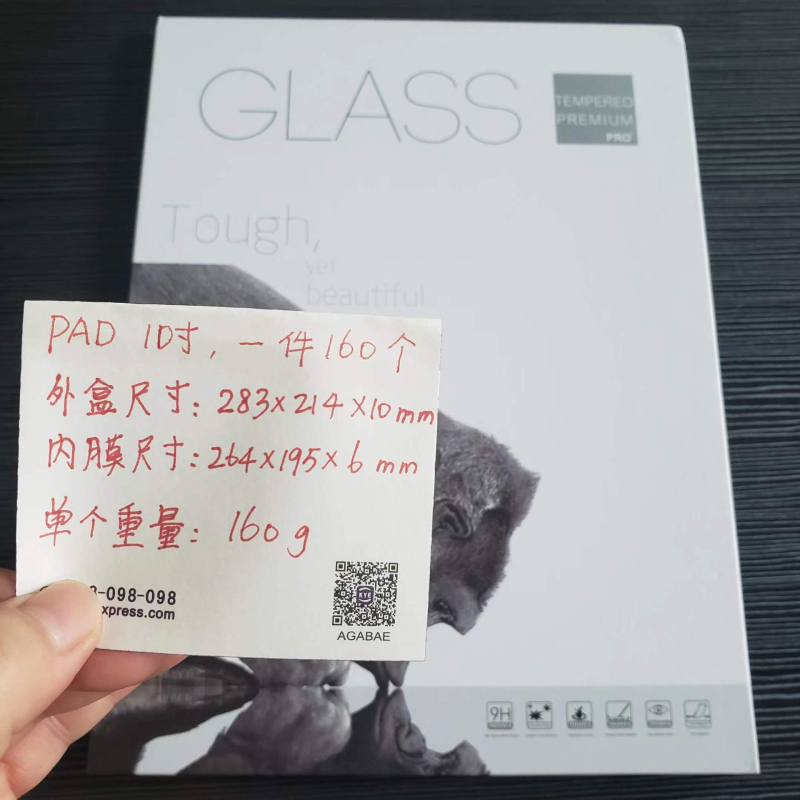 GLASS
TEMPERED
PREMIUM
PRO
Tough,
yet
beautiful
PAD 10寸, 一件160个
外盒尺寸: 283×214×10mm
内膜尺寸: 264×195×6mm
单个重量: 160g
-098-098
xpress.com
AGABAE
9H